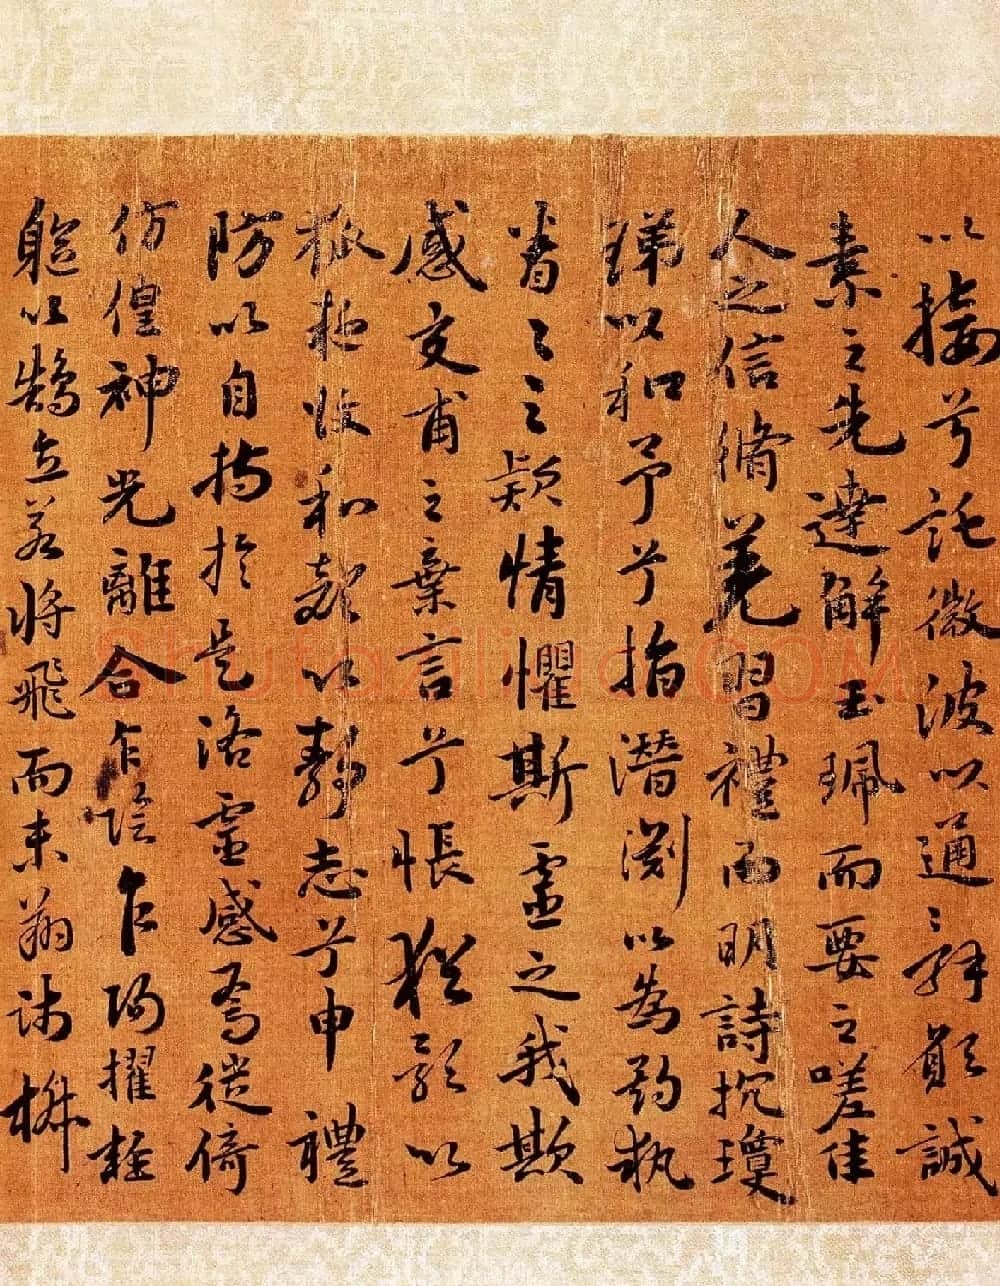 以接兮託微波以通辭願誠
素之先達解玉珮而要之嗟佳
人之信脩羌習禮而明詩抗瓊
珶以和予兮指潛淵以為期執
眷〻之款情懼斯靈之我欺
感交甫之棄言兮悵猶豫以
狐疑收和顏以靜志兮申禮
防以自持於是洛靈感焉徙倚
仿偟神光離合乍陰乍陽擢輕
軀以鶴立若將飛而未翔踐椒